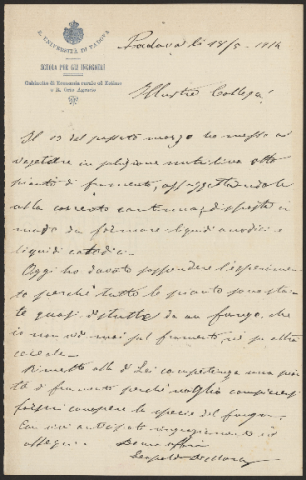 R. UNIVERSITÀ DI PADOVA
SCUOLA PER GLI INGEGNERI
Gabinetto di Economia rurale ed Estimo
Padova li 18/5 - 1914
Illustre Collega
Il 13 del passato marzo ho messo a
vegetare in soluzione nutritiva otto
piante di frumento, assoggettandole
alla corrente continua, disposte in
modo da formare liquidi anodici e
liquidi catodici.
Oggi ho dovuto sospendere l'esperimento
perchè tutte le piante sono state
quasi distrutte da un fungo, che
io non vidi mai sul frumento nè su altro
cereale.
Rimetto alla di Lei competenza una
di frumento perchè voglia
conoscere la specie del fungo.
Con vivi anticipati ringraziamenti ed
ossequi.